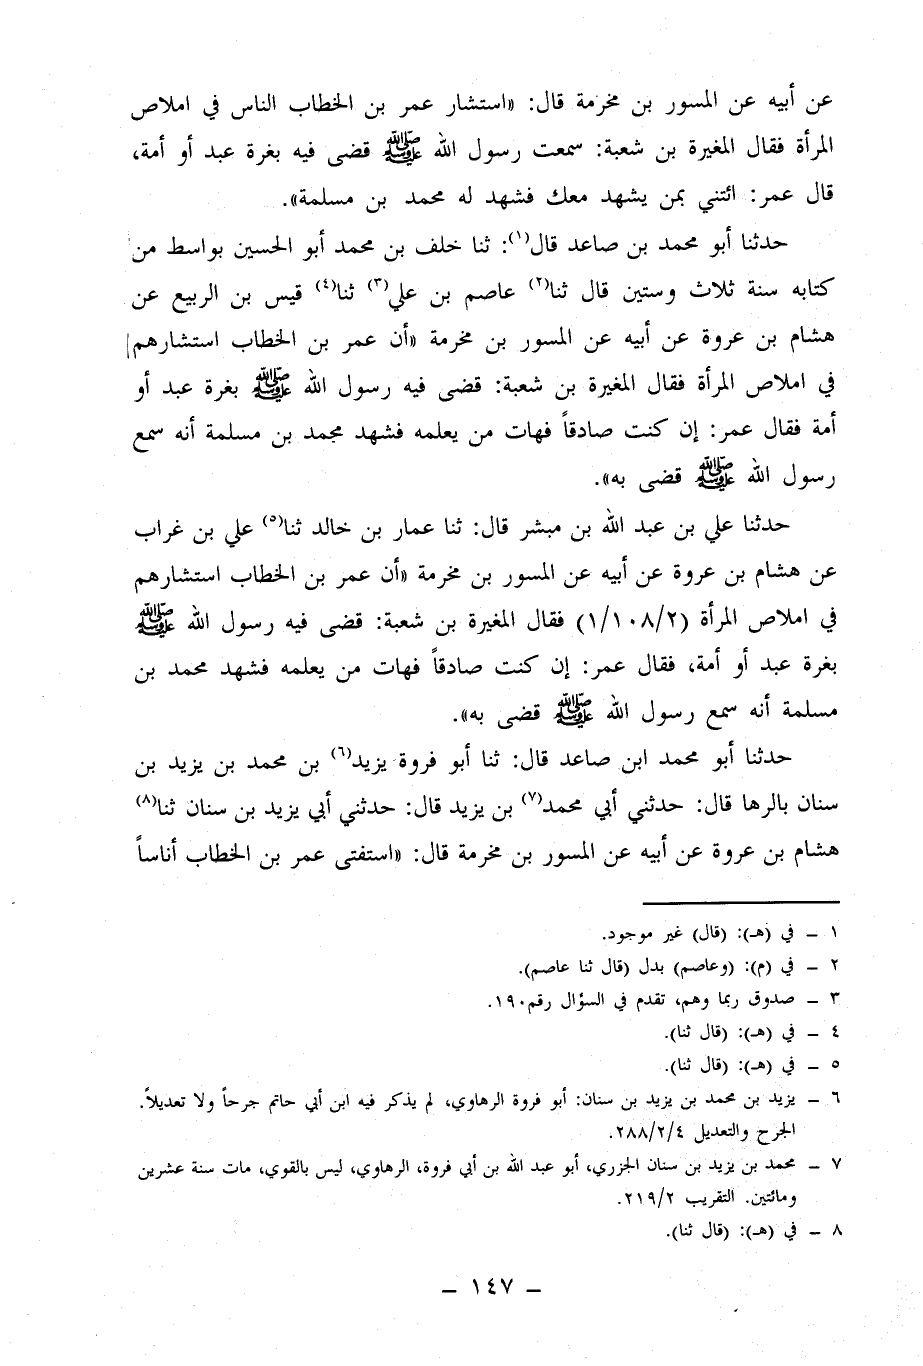 عن أبيه عن المسور بن مخرمة قال: «استشار عمر بن الخطاب الناس في املاص
المرأة فقال المغيرة بن شعبة: سمعت رسول الله ﷺ قضى فيه بغرة عبد أو أمة،
قال عمر: ائتني بمن يشهد معك فشهد له محمد بن مسلمة».
حدثنا أبو محمد بن صاعد قال(١): ثنا خلف بن محمد أبو الحسين بواسط من
كتابه سنة ثلاث وستين قال ثنا(٢) عاصم بن علي(٣) ثنا(٤) قيس بن الربيع عن
هشام بن عروة عن أبيه عن المسور بن مخرمة «أن عمر بن الخطاب استشارهم
في املاص المرأة فقال المغيرة بن شعبة: قضى فيه رسول الله ﷺ بغرة عبد أو
أمة فقال عمر: إن كنت صادقاً فهات من يعلمه فشهد محمد بن مسلمة أنه سمع
رسول الله ﷺ قضى به».
حدثنا علي بن عبد الله بن مبشر قال: ثنا عمار بن خالد ثنا(٥) علي بن غراب
عن هشام بن عروة عن أبيه عن المسور بن مخرمة «أن عمر بن الخطاب استشارهم
في املاص المرأة (١/١٠٨/٢) فقال المغيرة بن شعبة: قضى فيه رسول الله ﷺ
بغرة عبد أو أمة، فقال عمر: إن كنت صادقاً فهات من يعلمه فشهد محمد بن
مسلمة أنه سمع رسول الله ﷺ قضى به».
حدثنا أبو محمد ابن صاعد قال: ثنا أبو فروة يزيد(٦) بن محمد بن يزيد بن
سنان بالرها قال: حدثني أبي محمد(٧) بن يزيد قال: حدثني أبي يزيد بن سنان ثنا(٨)
هشام بن عروة عن أبيه عن المسور بن مخرمة قال: «استفتى عمر بن الخطاب أناساً
١ – في (هـ): (قال) غير موجود.
٢ – في (م): (وعاصم) بدل (قال ثنا عاصم).
٣ – صدوق ربما وهم، تقدم في السؤال رقم١٩٠.
٤ – في (هـ): (قال ثنا).
٥ – في (هـ): (قال ثنا).
٦ – يزيد بن محمد بن يزيد بن سنان: أبو فروة الرهاوي، لم يذكر فيه ابن أبي حاتم جرحاً ولا تعديلاً.
الجرح والتعديل ٢٨٨/٢/٤.
٧ – محمد بن يزيد بن سنان الجزري، أبو عبد الله بن أبي فروة، الرهاوي، ليس بالقوي، مات سنة عشرين
ومائتين. التقريب ٢١٩/٢.
٨ – في (هـ): (قال ثنا).
– ١٤٧ –